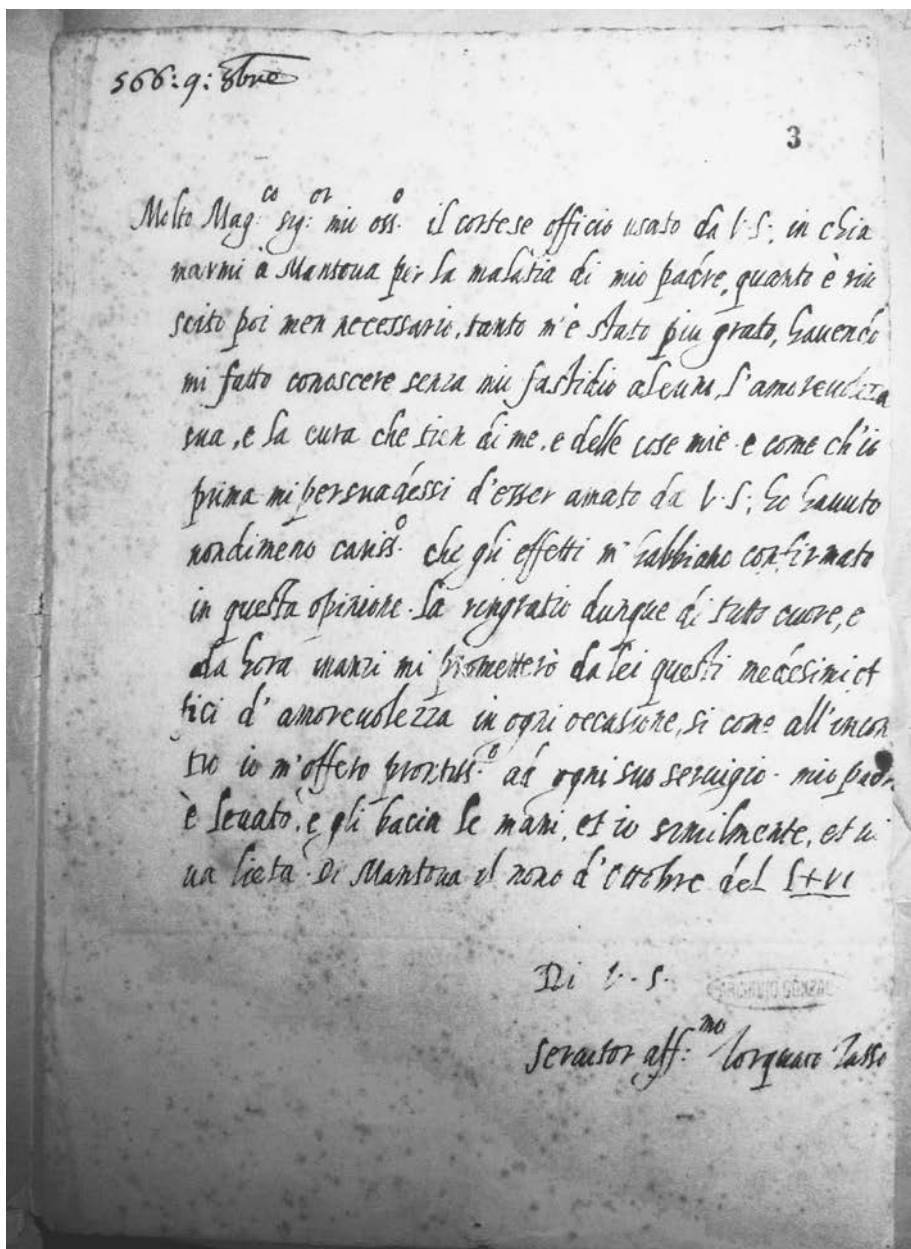 566: 9: 8bre
3
Molto Mag:co sig:or mio oss:o il cortese officio usato da V.S: in chia
marmi à Mantova per la malatia di mio padre, quanto è riu
scito poi men necessario, tanto m'è stato piu grato, havendo
mi fatto conoscere senza mio fastidio alcuno, l'amorevolezza
sua, e la cura che tien di me, e delle cose mie. e come ch'io
prima mi persuadessi d'esser amato da V.S; ho havuto
nondimeno cariss:o che gli effetti m'habbiano confirmato
in questa opinione. La ringratio dunque di tutto cuore, e
da hora inanzi mi prometterò da lei questi medesimi of
fici d'amorevolezza in ogni occasione, si come all'incon
tro io m'offero prontiss:o ad ogni suo servigio. mio padre
è levato, e gli bacia le mani, et io similmente, et vi
va lieta. Di Mantova il nono d'Ottobre del LXVI
Di V.S.
Servitor aff:mo Torquato Tasso
ARCHIVIO GONZAGA